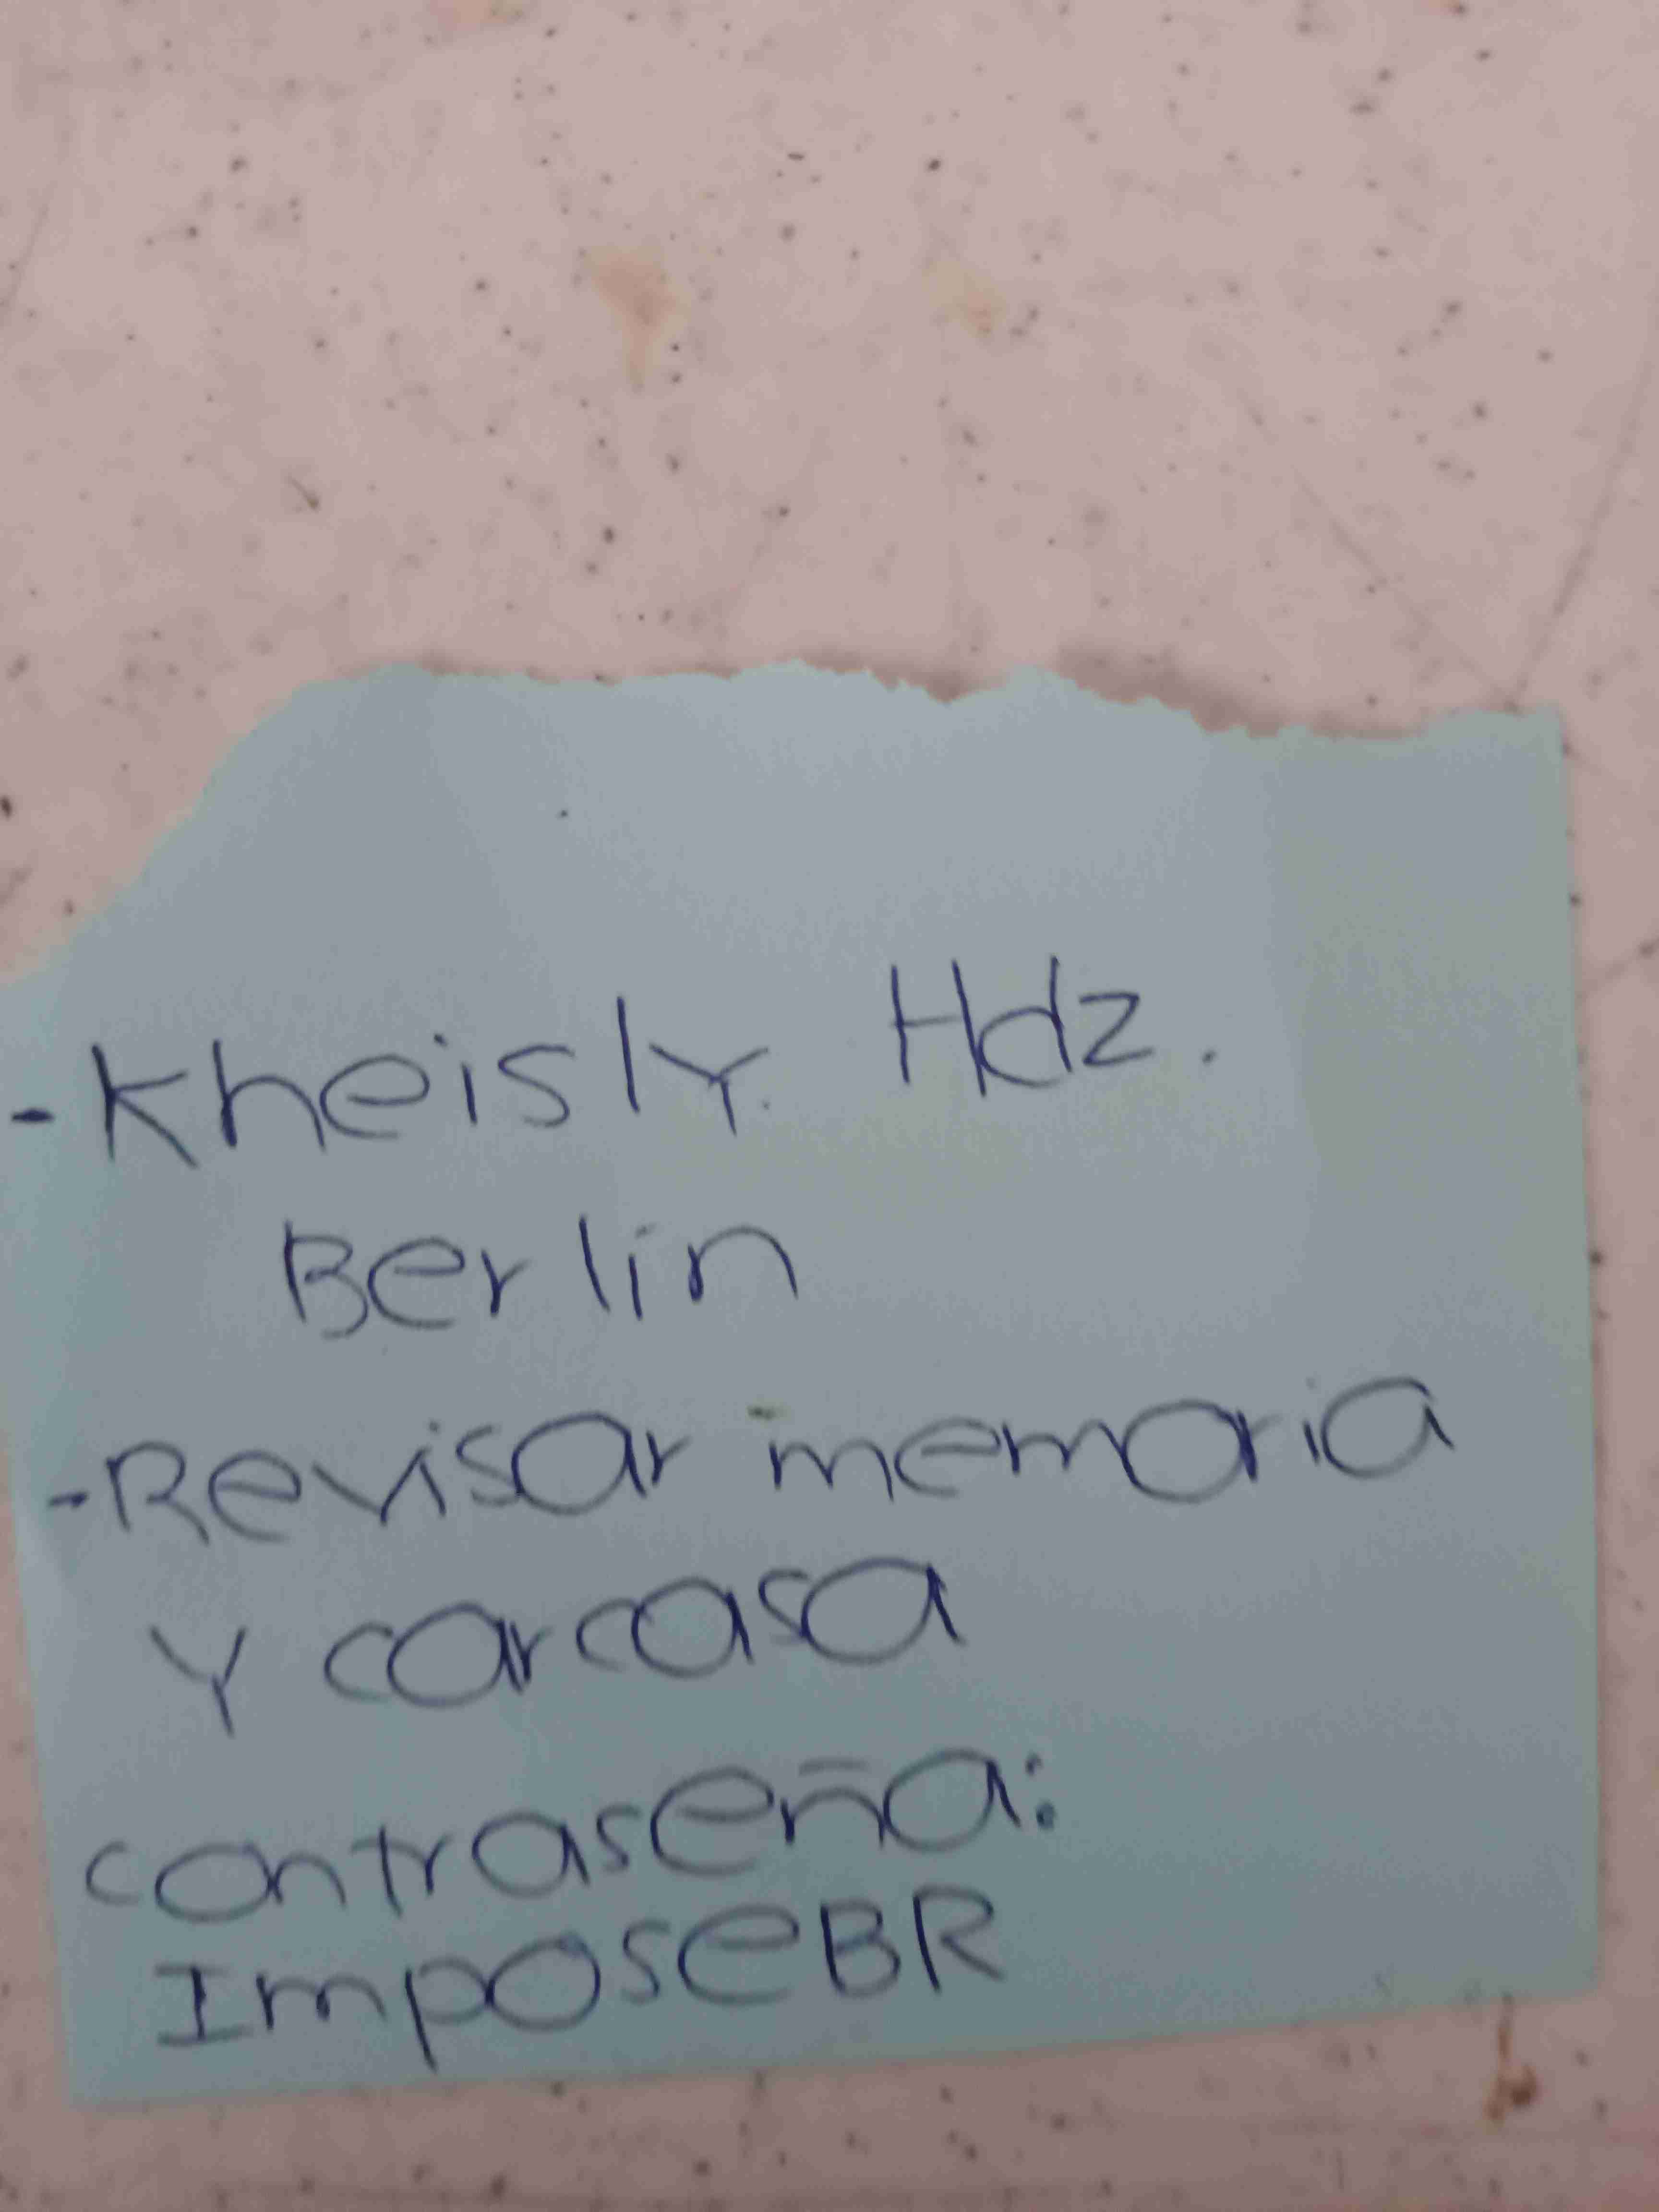 - Kheisly Hdz.
Berlin
- Revisar memoria
Y carcasa
contraseña:
ImposeBR